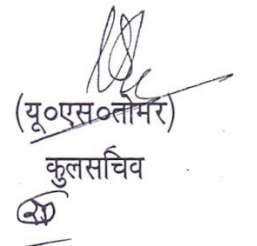 (यू०एस०तोमर)
कुलसचिव